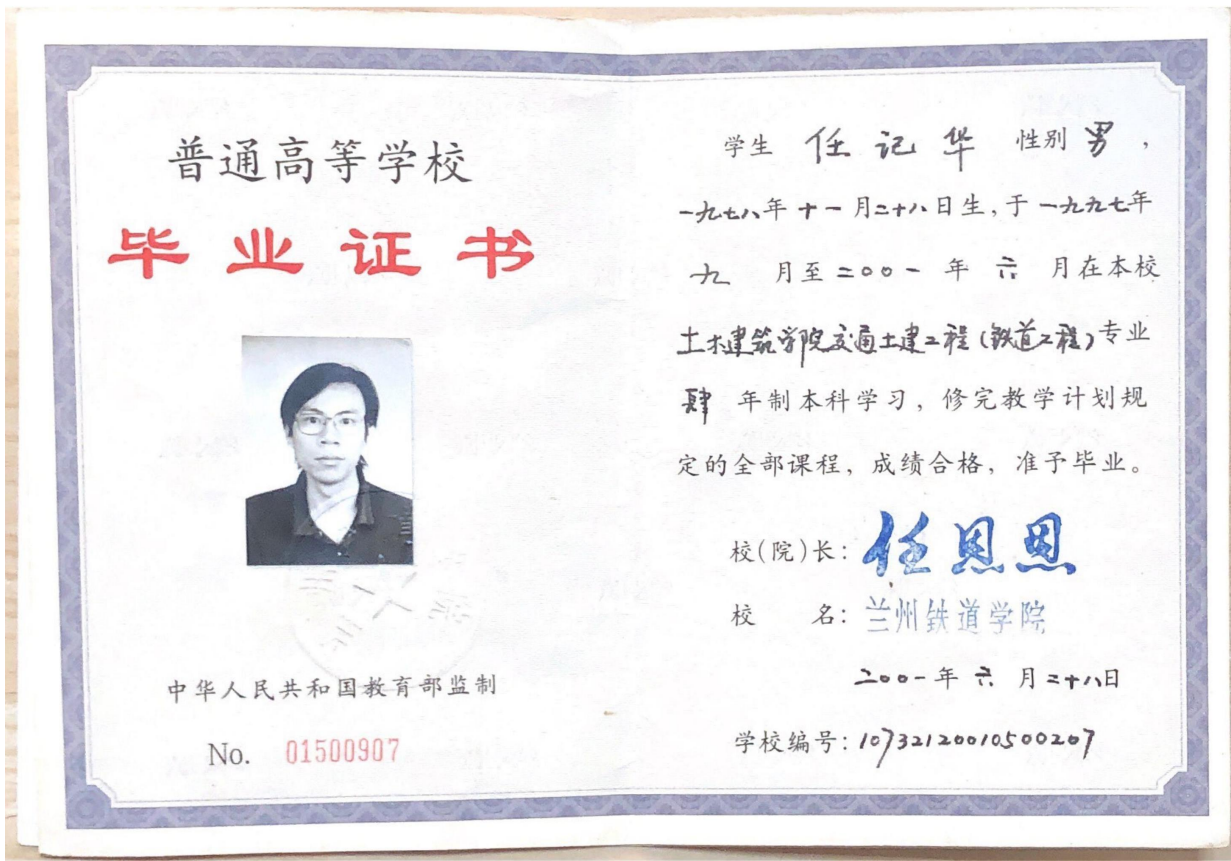 普通高等学校
毕业证书
中华人民共和国教育部监制
No. 01500907
学生 任记华 性别 男，
一九七八年十一月二十八日生，于一九九七年
九 月至二〇〇一 年 六 月在本校
土木建筑学院交通土建工程(铁道工程)专业
肆 年制本科学习，修完教学计划规
定的全部课程，成绩合格，准予毕业。
校(院)长：任恩恩
校 名：兰州铁道学院
二〇〇一年 六 月二十八日
学校编号：10732120010500207